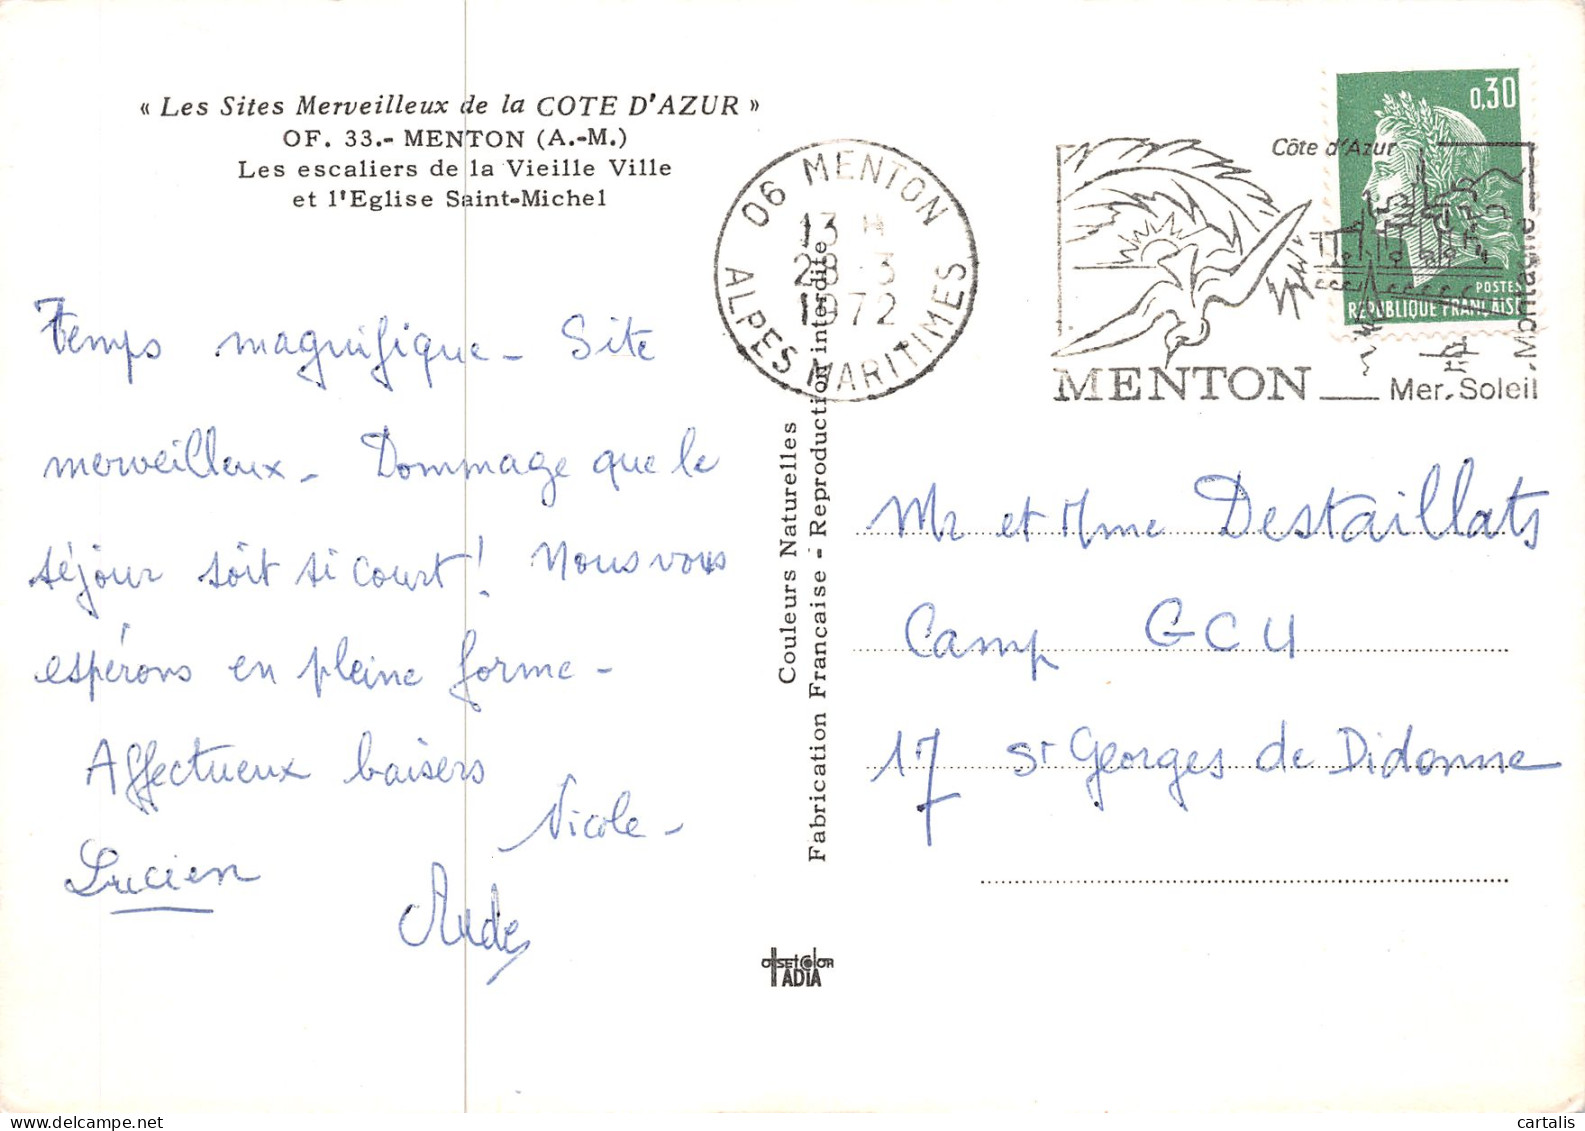 « Les Sites Merveilleux de la COTE D'AZUR »
OF. 33.- MENTON (A.-M.)
Les escaliers de la Vieille Ville
et l'Eglise Saint-Michel
Temps magnifique - Site
merveilleux - Dommage que le
séjour soit si court ! Nous vous
espérons en pleine forme -
Affectueux baisers
Nicole -
Lucien
Aude
Couleurs Naturelles
Fabrication Francaise - Reproduction interdite
OFFSETCOLOR
ADIA
06 MENTON
13 H
28 - 3
1972
ALPES MARITIMES
Côte d'Azur
MENTON
Mer, Soleil, Montagne
0,30
POSTES
REPUBLIQUE FRANÇAISE
Mr et Mme Destaillats
Camp GCU
17 St Georges de Didonne
delcampe.net
cartalis